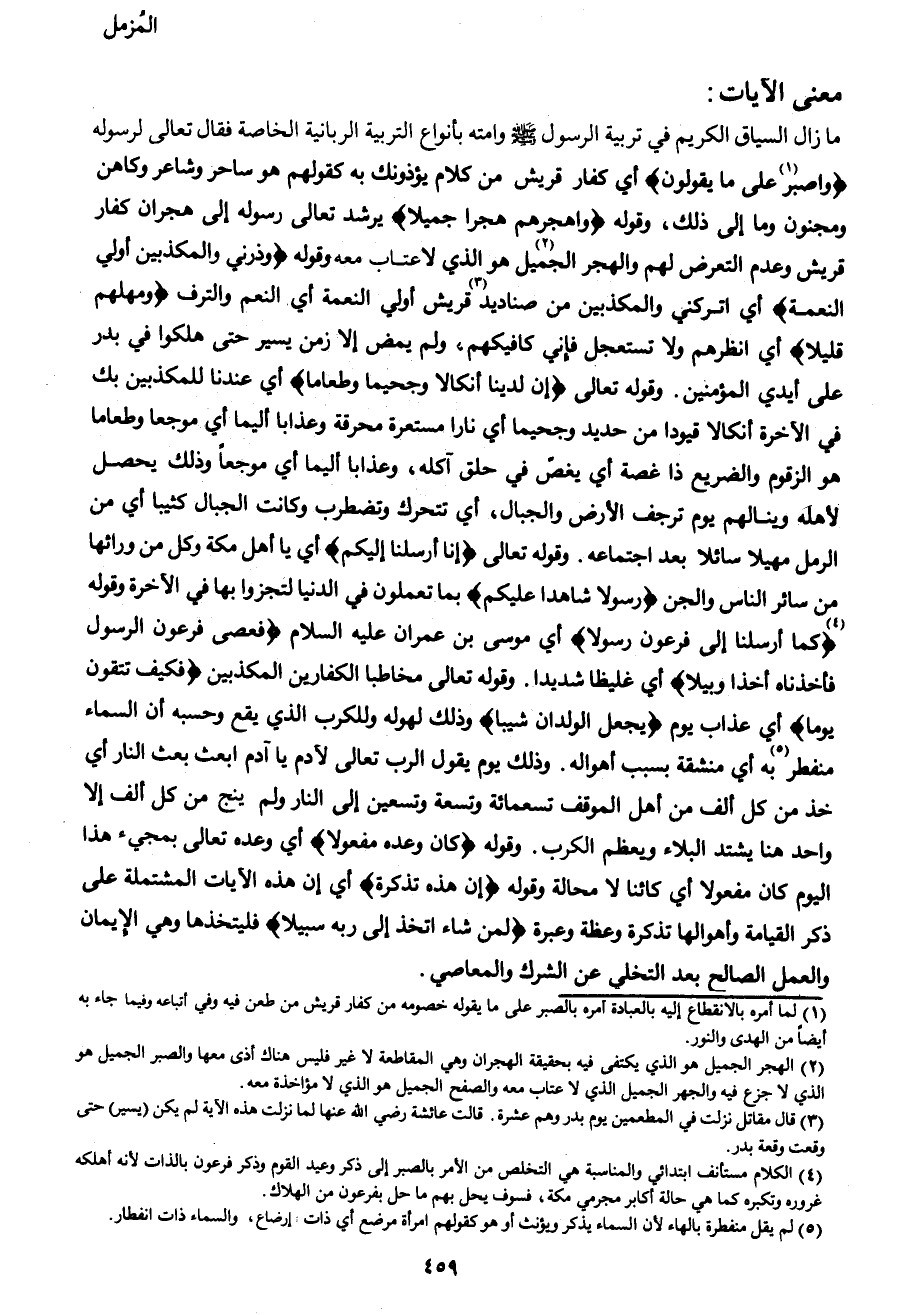 المُزمل
معنى الآيات :
ما زال السياق الكريم في تربية الرسول ﷺ وامته بأنواع التربية الربانية الخاصة فقال تعالى لرسوله
﴿واصبر(١) على ما يقولون﴾ أي كفار قريش من كلام يؤذونك به كقولهم هو ساحر وشاعر وكاهن
ومجنون وما إلى ذلك، وقوله ﴿واهجرهم هجرا جميلا﴾ يرشد تعالى رسوله إلى هجران كفار
قريش وعدم التعرض لهم والهجر الجميل(٢) هو الذي لاعتاب معه وقوله ﴿وذرني والمكذبين أولي
النعمة﴾ أي اتركني والمكذبين من صناديد(٣) قريش أولي النعمة أي النعم والترف ﴿ومهلهم
قليلا﴾ أي انظرهم ولا تستعجل فإني كافيكهم، ولم يمض إلا زمن يسير حتى هلكوا في بدر
على أيدي المؤمنين. وقوله تعالى ﴿إن لدينا أنكالا وجحيما وطعاما﴾ أي عندنا للمكذبين بك
في الآخرة أنكالا قيودا من حديد وجحيما أي نارا مستعرة محرقة وعذابا أليما أي موجعا وطعاما
هو الزقوم والضريع ذا غصة أي يغصّ في حلق آكله، وعذابا أليما أي موجعاً وذلك يحصل
لأهله وينالهم يوم ترجف الأرض والجبال، أي تتحرك وتضطرب وكانت الجبال كثيبا أي من
الرمل مهيلا سائلا بعد اجتماعه. وقوله تعالى ﴿إنا أرسلنا إليكم﴾ أي يا أهل مكة وكل من ورائها
من سائر الناس والجن ﴿رسولا شاهدا عليكم﴾ بما تعملون في الدنيا لتجزوا بها في الآخرة وقوله
(٤)﴿كما أرسلنا إلى فرعون رسولا﴾ أي موسى بن عمران عليه السلام ﴿فعصى فرعون الرسول
فأخذناه أخذا وبيلا﴾ أي غليظا شديدا. وقوله تعالى مخاطبا الكفارين المكذبين ﴿فكيف تتقون
يوما﴾ أي عذاب يوم ﴿يجعل الولدان شيبا﴾ وذلك لهوله وللكرب الذي يقع وحسبه أن السماء
منفطر(٥) به أي منشقة بسبب أهواله. وذلك يوم يقول الرب تعالى لآدم يا آدم ابعث بعث النار أي
خذ من كل ألف من أهل الموقف تسعمائة وتسعة وتسعين إلى النار ولم ينج من كل ألف إلا
واحد هنا يشتد البلاء ويعظم الكرب. وقوله ﴿كان وعده مفعولا﴾ أي وعده تعالى بمجيء هذا
اليوم كان مفعولا أي كائنا لا محالة وقوله ﴿إن هذه تذكرة﴾ أي إن هذه الآيات المشتملة على
ذكر القيامة وأهوالها تذكرة وعظة وعبرة ﴿لمن شاء اتخذ إلى ربه سبيلا﴾ فليتخذها وهي الإيمان
والعمل الصالح بعد التخلي عن الشرك والمعاصي.
(١) لما أمره بالانقطاع إليه بالعبادة أمره بالصبر على ما يقوله خصومه من كفار قريش من طعن فيه وفي أتباعه وفيما جاء به
أيضاً من الهدى والنور.
(٢) الهجر الجميل هو الذي يكتفى فيه بحقيقة الهجران وهي المقاطعة لا غير فليس هناك أذى معها والصبر الجميل هو
الذي لا جزع فيه والجهر الجميل الذي لا عتاب معه والصفح الجميل هو الذي لا مؤاخذة معه.
(٣) قال مقاتل نزلت في المطعمين يوم بدر وهم عشرة. قالت عائشة رضي الله عنها لما نزلت هذه الآية لم يكن (يسير) حتى
وقعت وقعة بدر.
(٤) الكلام مستأنف ابتدائي والمناسبة هي التخلص من الأمر بالصبر إلى ذكر وعيد القوم وذكر فرعون بالذات لأنه أهلكه
غروره وتكبره كما هي حالة أكابر مجرمي مكة، فسوف يحل بهم ما حل بفرعون من الهلاك.
(٥) لم يقل منفطرة بالهاء لأن السماء يذكر ويؤنث أو هو كقولهم امرأة مرضع أي ذات إرضاع، والسماء ذات انفطار.
٤٥٩